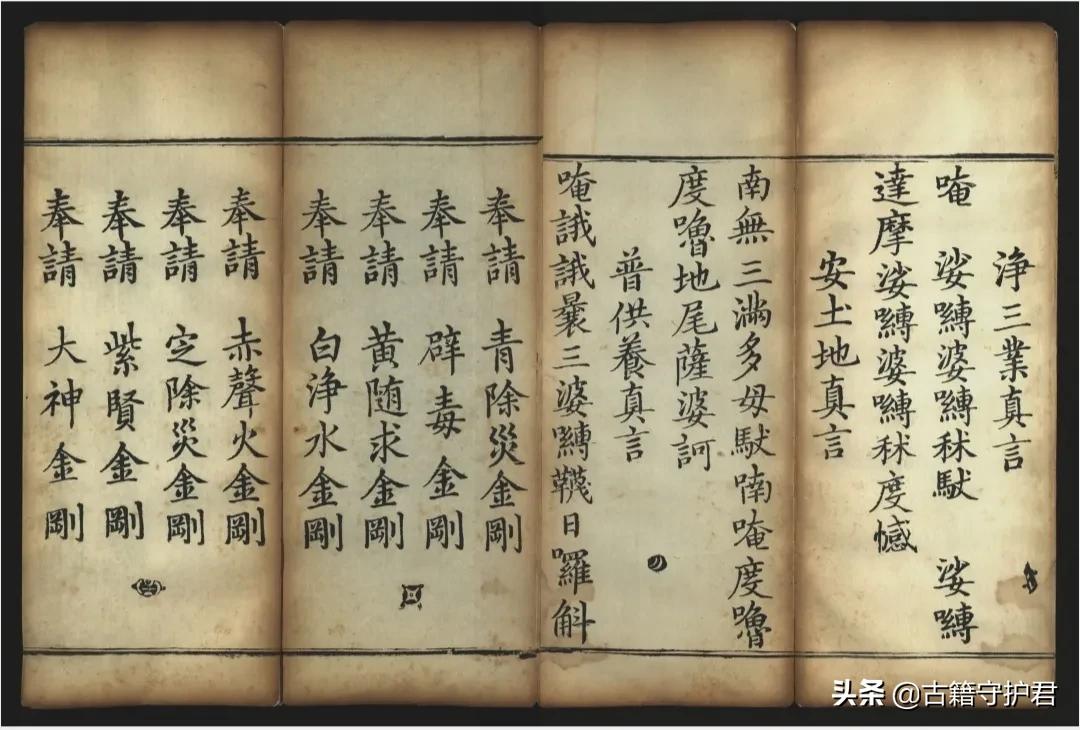 淨三業真言
唵 娑嚩婆嚩秫馱 娑嚩
達摩娑嚩婆嚩秫度憾
安土地真言
南無三滿多母馱喃唵度嚕
度嚕地尾薩婆訶
普供養真言
唵誐誐曩三婆嚩韈日囉斛
奉請 青除災金剛
奉請 辟毒金剛
奉請 黄随求金剛
奉請 白淨水金剛
奉請 赤聲火金剛
奉請 定除災金剛
奉請 紫賢金剛
奉請 大神金剛
头条 @古籍守护君